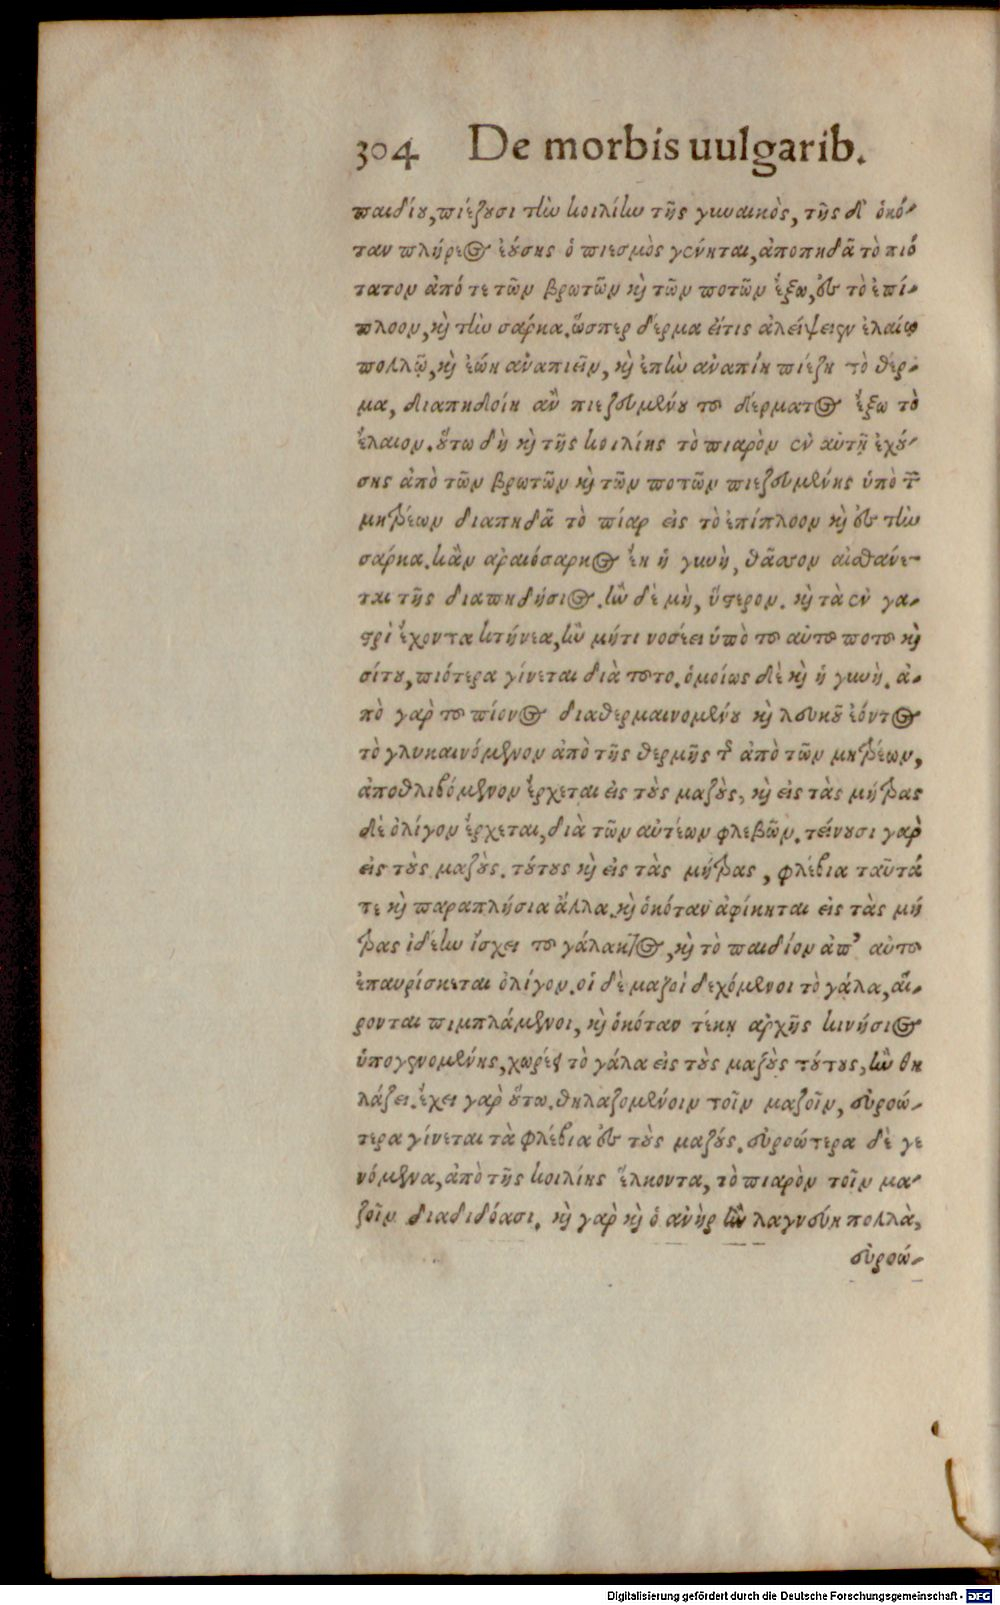 304 De morbis uulgarib.
παιδίου, πιέζουσι τὴν κοιλίην τῆς γυναικὸς, τῆς δ' ὁκό-
ταν πλήρεος ἐούσης ὁ πιεσμὸς γένηται, ἀποπηδᾶ τὸ πιό
τατον ἀπό τε τῶν βρωτῶν καὶ τῶν ποτῶν ἔξω, ἐς τὸ ἐπί-
πλοον, καὶ τὴν σάρκα. ὥσπερ δέρμα εἴτις ἀλείψειεν ἐλαίῳ
πολλῷ, καὶ ἐώη ἀναπιεῖν, καὶ ἐπὴν ἀναπίη πιέζη τὸ δέρ-
μα, διαπηδοίη ἂν πιεζευμένου τοῦ δέρματος ἔξω τὸ
ἔλαιον. οὕτω δὴ καὶ τῆς κοιλίης τὸ πιαρὸν ἐν αὐτῇ ἐχού-
σης ἀπὸ τῶν βρωτῶν καὶ τῶν ποτῶν πιεζευμένης ὑπὸ τῶν
μητρέων διαπηδᾶ τὸ πίαρ εἰς τὸ ἐπίπλοον καὶ ἐς τὴν
σάρκα. κἂν ἀραιόσαρκος ἔη ἡ γυνὴ, θᾶσσον αἰσθάνε-
ται τῆς διαπηδήσιος. ἢν δὲ μὴ, ὕστερον. καὶ τὰ ἐν γα-
στρὶ ἔχοντα κτήνεα, ἢν μήτι νοσέει ὑπὸ τοῦ αὐτοῦ ποτοῦ καὶ
σίτου, πιότερα γίνεται διὰ τοῦτο. ὁμοίως δὲ καὶ ἡ γυνὴ. ἀ-
πὸ γὰρ τοῦ πίονος διαθερμαινομένου καὶ λευκοῦ ἐόντος
τὸ γλυκαινόμενον ἀπὸ τῆς θερμῆς τῆς ἀπὸ τῶν μητρέων,
ἀποθλιβόμενον ἔρχεται εἰς τοὺς μαζοὺς, καὶ εἰς τὰς μήτρας
δὲ ὀλίγον ἔρχεται, διὰ τῶν αὐτέων φλεβῶν. τείνουσι γὰρ
εἰς τοὺς μαζοὺς. τούτους καὶ εἰς τὰς μήτρας, φλέβια ταῦτά
τε καὶ παραπλήσια ἄλλα. καὶ ὁκόταν ἀφίκηται εἰς τὰς μή
τρας ἰδέην ἴσχει τοῦ γάλακτος, καὶ τὸ παιδίον ἀπ' αὐτοῦ
ἐπαυρίσκεται ὀλίγον. οἱ δὲ μαζοὶ δεχόμενοι τὸ γάλα, αἴ-
ρονται πιμπλάμενοι, καὶ ὁκόταν τέκῃ ἀρχῆς κινήσιος
ὑπογενομένης, χωρέει τὸ γάλα εἰς τοὺς μαζοὺς τούτους, ἢν θη
λάζει. ἔχει γὰρ οὕτω. θηλαζομένοιν τοῖν μαζοῖν, εὐροώ-
τερα γίνεται τὰ φλέβια ἐς τοὺς μαζούς. εὐροώτερα δὲ γε
νόμενα, ἀπὸ τῆς κοιλίης ἕλκοντα, τὸ πιαρὸν τοῖν μα-
ζοῖν διαδιδόασι. καὶ γὰρ καὶ ὁ ἀνὴρ ἢν λαγνεύη πολλὰ,
εὐροώ-
Digitalisierung gefördert durch die Deutsche Forschungsgemeinschaft - DFG